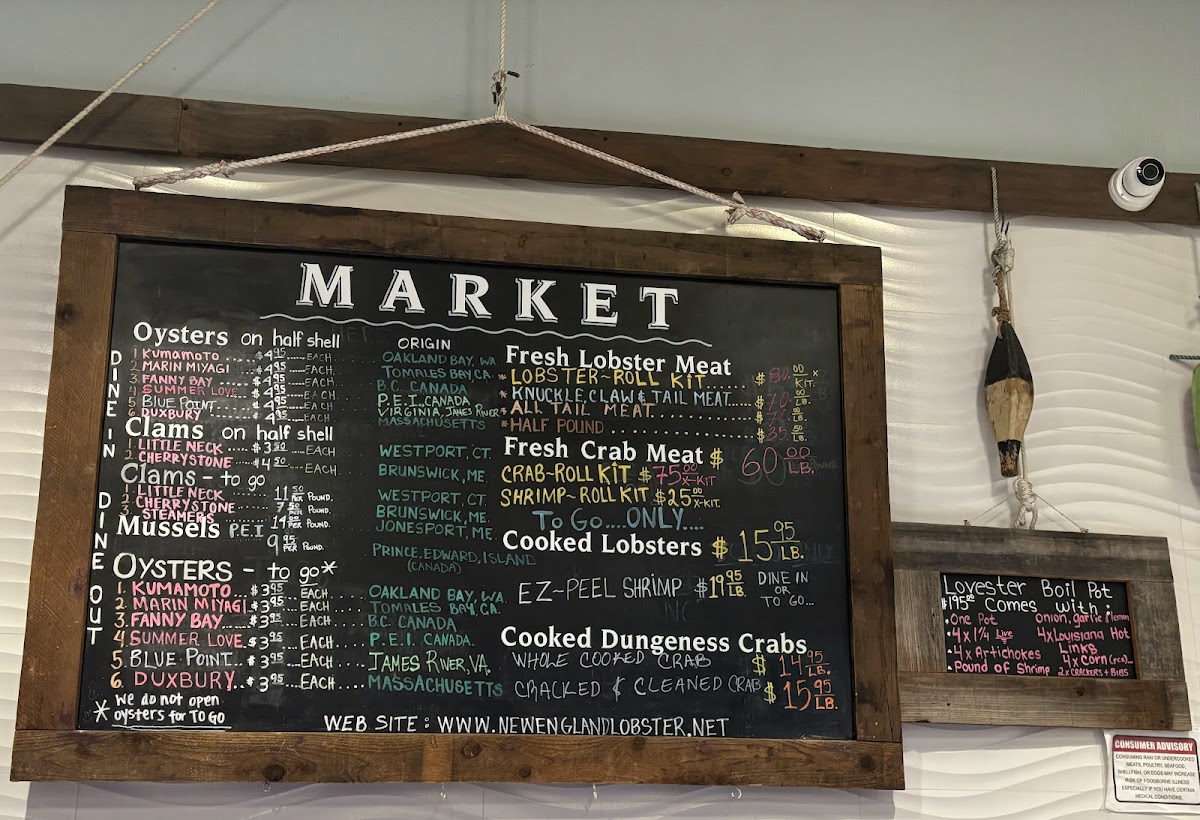 MARKET
DINE IN
Oysters on half shell
ORIGIN
1 KUMAMOTO .... $4.95 ..... EACH OAKLAND BAY, WA
2 MARIN MIYAGI $4.95 ..... EACH. TOMALES BAY, CA.
3. FANNY BAY ..... $4.95 ..... EACH. B.C. CANADA
4 SUMMER LOVE ... $4.95 ..... EACH P.E.I., CANADA
5 BLUE POINT .... $4.95 ..... EACH VIRGINIA, JAMES RIVER
6 DUXBURY ..... $4.95 ..... EACH MASSACHUSETTS
Clams on half shell
1 LITTLE NECK ... $3.50 ..... EACH WESTPORT, CT.
2 CHERRYSTONE ... $4.50 ..... EACH BRUNSWICK, ME.
DINE OUT
Clams - to go
1. LITTLE NECK ....... 11.50 PER POUND. WESTPORT, CT.
2. CHERRYSTONE ..... 7.50 PER POUND. BRUNSWICK, ME.
3. STEAMERS ...... 14.00 PER POUND. JONESPORT, ME.
Mussels P.E.I 9.95 PER POUND. PRINCE, EDWARD, ISLAND
(CANADA)
OYSTERS - to go*
1. KUMAMOTO... $3.95 ... EACH .... OAKLAND BAY, WA
2. MARIN MIYAGI $3.95 ... EACH .... TOMALES BAY, CA.
3. FANNY BAY .... $3.95 ... EACH .... B.C. CANADA
4. SUMMER LOVE. $3.95 ... EACH .... P.E.I. CANADA.
5. BLUE POINT... $3.95 ... EACH .... JAMES RIVER, VA.
6. DUXBURY... $3.95 ... EACH .... MASSACHUSETTS
* we do not open
oysters for TO GO
Fresh Lobster Meat
* LOBSTER~ROLL KIT ....... $80.00 x KIT.
* KNUCKLE, CLAW & TAIL MEAT..... $ LB.
* ALL TAIL MEAT............ $ LB.
* HALF POUND ............... $35 LB.
Fresh Crab Meat $60.00 LB.
CRAB-ROLL KIT $75.00 X-KIT
SHRIMP~ROLL KIT $25.00 X-KIT.
TO GO....ONLY....
Cooked Lobsters $15.95 LB.
EZ-PEEL SHRIMP $19.95 LB. DINE IN OR TO GO...
Cooked Dungeness Crabs
WHOLE COOKED CRAB $14.95 LB.
CRACKED & CLEANED CRAB $15.95 LB.
WEB SITE: WWW.NEWENGLANDLOBSTER.NET
Lovester Boil Pot
$195.00 Comes with:
• One Pot
• 4 x 1¼ Live
• 4 x Artichokes
Pound of Shrimp
onion, garlic,
4x Louisiana Hot
Links
4x corn (pcs)...
2 x CRACKERS + BIBS
CONSUMER ADVISORY
CONSUMING RAW OR UNDERCOOKED
MEATS, POULTRY, SEAFOOD,
SHELLFISH, OR EGGS MAY INCREASE
RISK OF FOODBORNE ILLNESS
ESPECIALLY IF YOU HAVE CERTAIN
MEDICAL CONDITIONS.